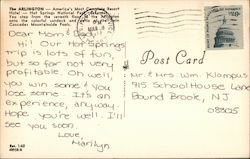 The ARLINGTON — America's Most Complete Resort
Hotel — Hot Springs National Park, Arkansas
You step from the seventh floor of the Arlington
onto the colorful sundeck and
Cascades Mountainside Pools.
Dear Mom & Dad,
Hi! Our Hot Springs
trip is lots of fun,
but so far not very
profitable. Oh well,
you win some & you
lose some. It's an
experience, anyway.
Hope you're well. I'll
see you soon.
Love,
Marilyn
Post Card
Mr. & Mrs. Wm. Klompus
915 School House Lane
Bound Brook, NJ
08805